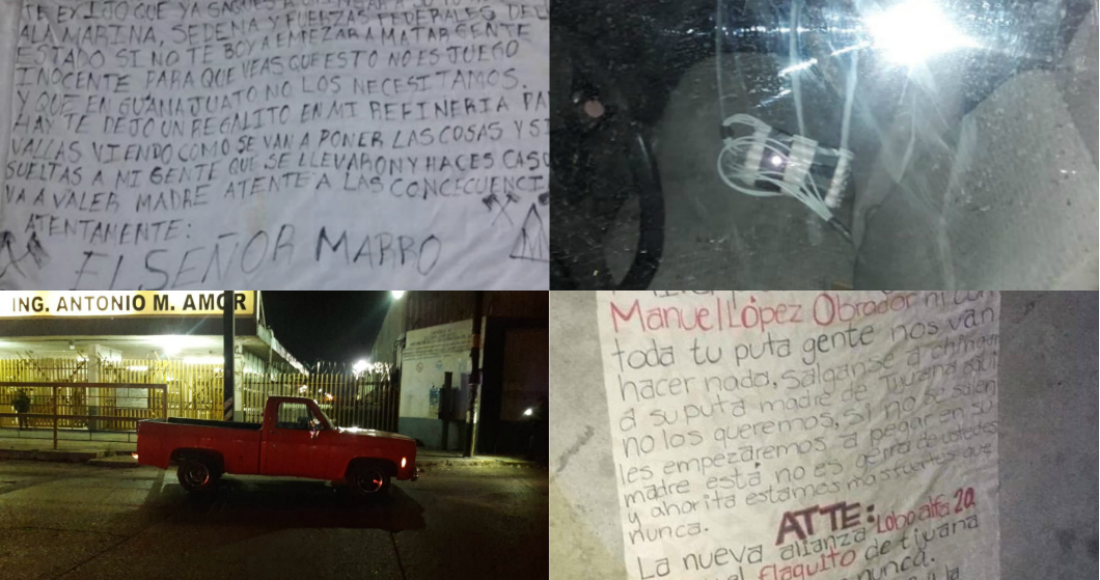 TE EXIJO QUE YA SAQUES A CHINGAR A
ALA MARINA, SEDENA Y FUERZAS FEDERALES DEL
ESTADO SI NO TE BOY A EMPEZAR A MATAR GENTE
INOCENTE PARA QUE VEAS QUE ESTO NO ES JUEGO
Y QUE EN GUANAJUATO NO LOS NECESITAMOS.
HAY TE DEJO UN REGALITO EN MI REFINERIA PA
VALLAS VIENDO COMO SE VAN A PONER LAS COSAS Y SI
SUELTAS A MI GENTE QUE SE LLEVARON Y HACES CASO
VA A VALER MADRE ATENTE A LAS CONCECUENCI
ATENTAMENTE:
EL SEÑOR MARRO
ING. ANTONIO M. AMOR
Manuel López Obrador ni con
toda tu puta gente nos van
hacer nada, salganse a chingar
a su puta madre de Tijuana aqui
no los queremos, si no se salen
les empezaremos a pegar en su
madre está no es gerra de ustedes
y ahorita estamos mas fuertes que
nunca.
ATTE: Lobo alfa 20
La nueva alianza
el flaquito de tijuana
nunca.
la